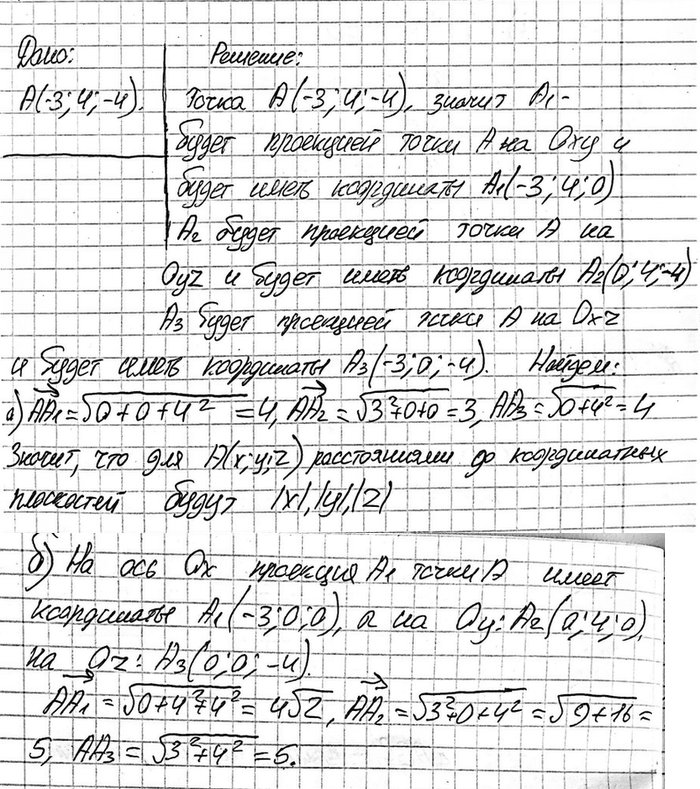 Дано: Решение:
A(-3; 4; -4). Точка A(-3; 4; -4), значит A₁ -
будет проекцией точки A на Oxy и
будет иметь координаты A₁(-3; 4; 0)
A₂ будет проекцией точки A на
Oyz и будет иметь координаты A₂(0; 4; -4)
A₃ будет проекцией точки A на Oxz
и будет иметь координаты A₃(-3; 0; -4). Найдем:
а) AA₁ = √(0+0+4²) = 4, AA₂ = √(3²+0+0) = 3, AA₃ = √(0+4²) = 4
Значит, что для A(x; y; z) расстояниями до координатных
плоскостей будут |x|, |y|, |z|
б) На ось Ox проекция A₁ точки A имеет
координаты A₁(-3; 0; 0), а на Oy: A₂(0; 4; 0),
на Oz: A₃(0; 0; -4).
AA₁ = √(0+4²+4²) = 4√2, AA₂ = √(3²+0+4²) = √(9+16) =
5, AA₃ = √(3²+4²) = 5.